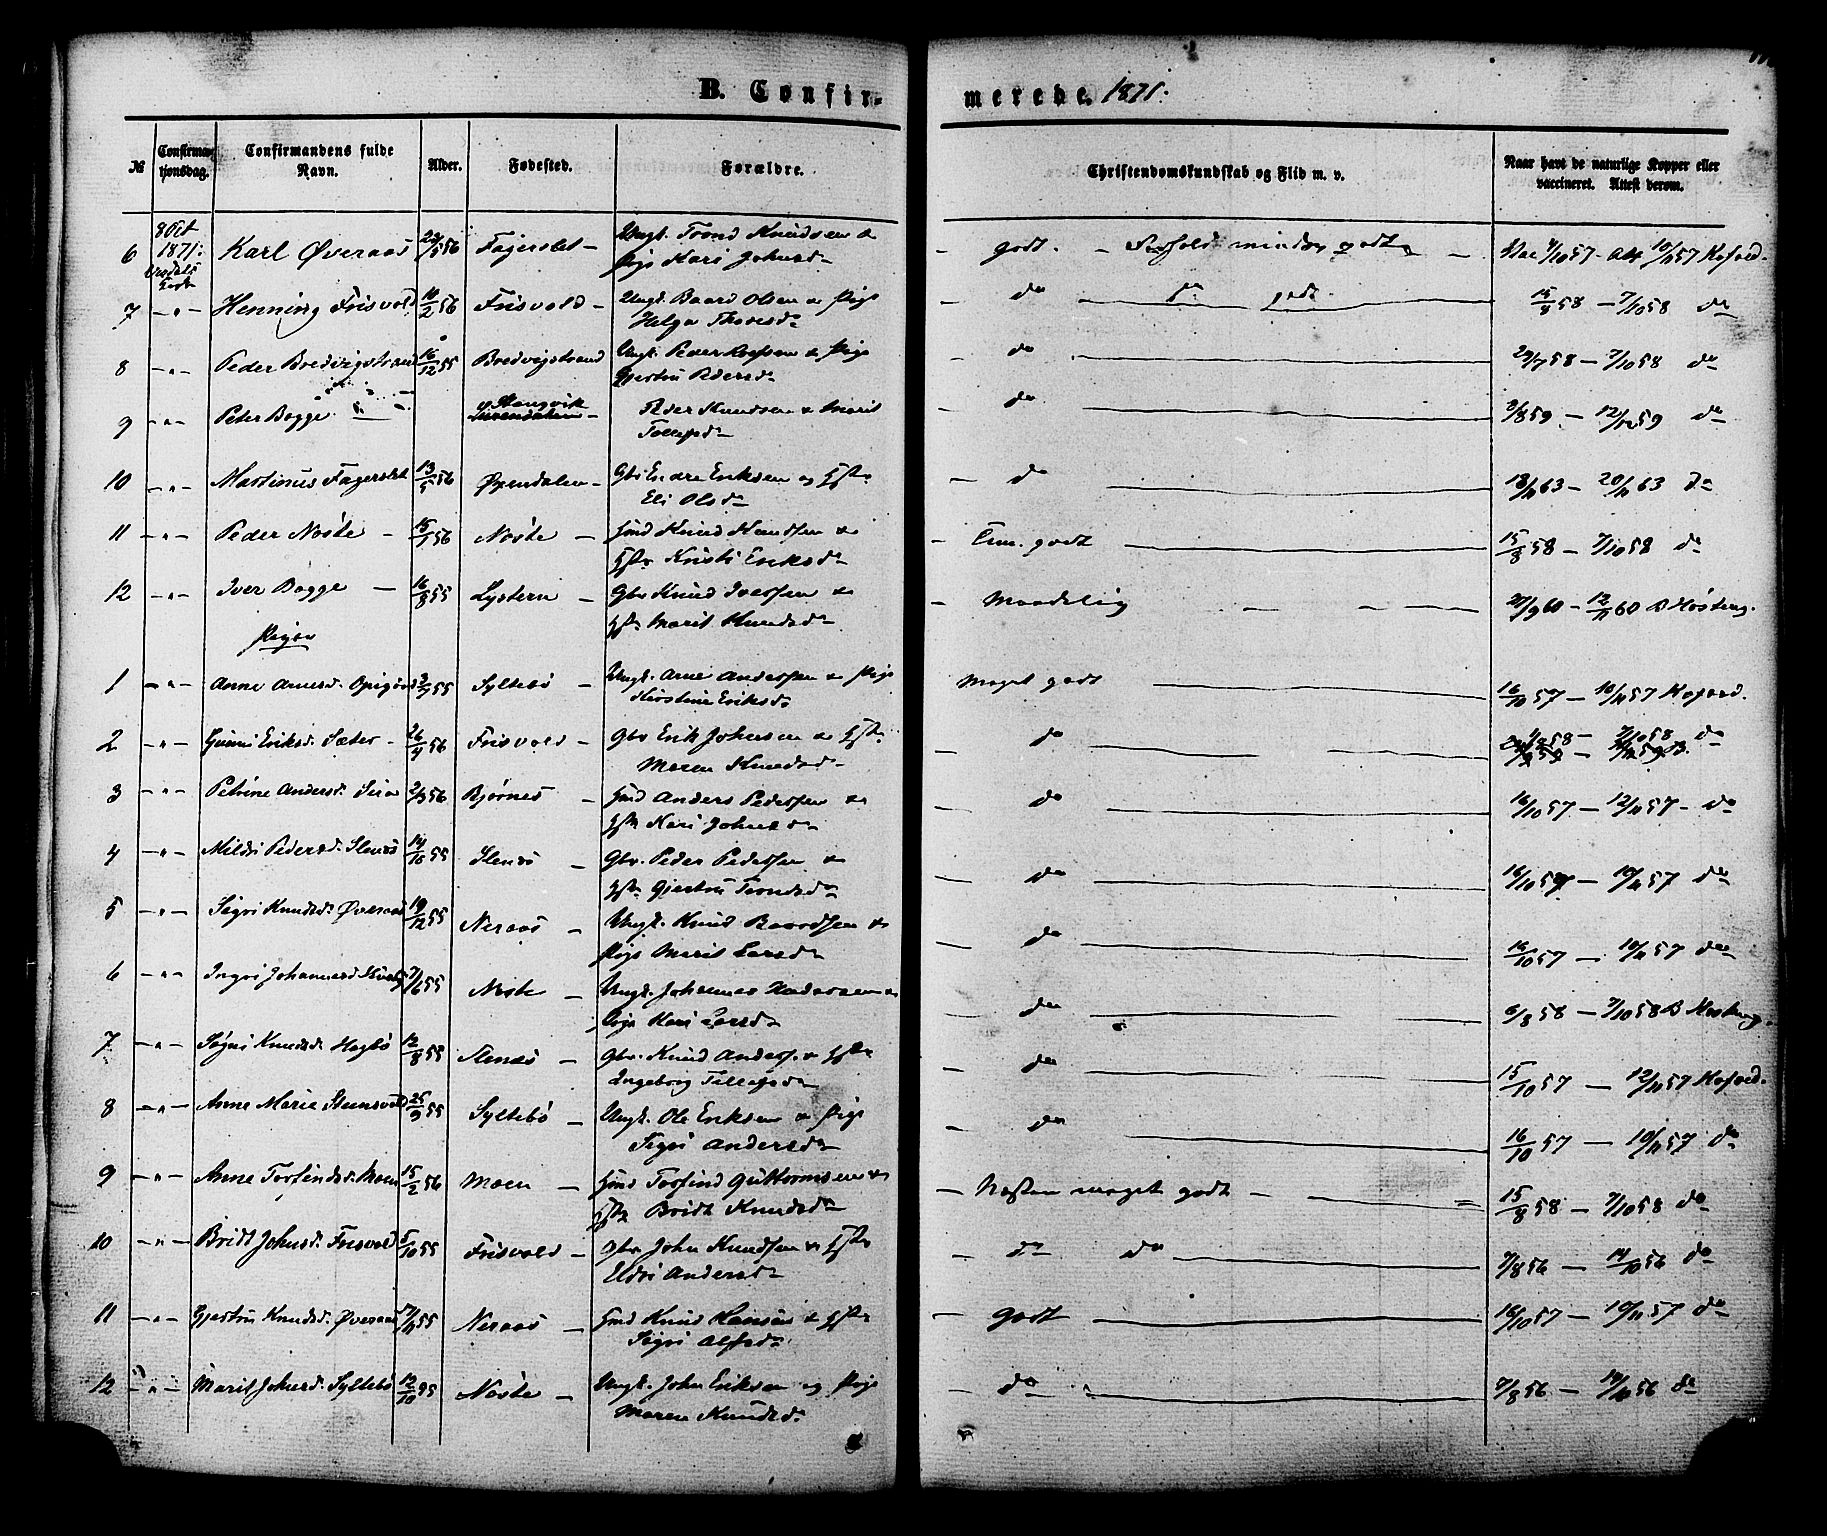 B. Confir-
merede. 1871.
№ Confirma-tjonsdag. Confirmandens fulde Navn. Alder. Fødested. Forældre. Christendomskundskab og Flid m. v. Naar havt de naturlige Kopper eller vaccineret. Attest derom.
8 Oct
1871.
6 Karl Øveraas 56 Fagerslet – Ungk. Trond Knudsen &
Pige Kari Johnsd. – godt. – Forhold mindre godt – 10/11 57 Kofoed.
7 – " – Henning Frisvold 10/2 56 Frisvold – Ungk. Baard Olsen & Pige
Helga Thoresd. – do – do godt. 15/8 58 – 7/10 58 do
8 – " – Peder Bredvigstrand 16/12 55 Bredvigstrand Ungk. Peder & Pige
Gjertru Pedersd. – do 29/7 58 – 7/10 58 do
9 – " – Peter Bogge – Stangvik
Surendalen – Peder Knudsen & Marit
Tollefsd. – do 2/8 59 – 12/12 59 do
10 – " – Martinus Fagerslet 13/5 56 Øxendalen – Gbr. Endre Eriksen og Hst.
Eli Olsd. – do 18/11 63 – 20/11 63 do
11 – " – Peder Nøste – 15/1 56 Nøste – Hmd Knud Knudsen &
Hst. Kristi Eriksd. – Tem. godt 15/8 58 – 7/10 58 do
12 – " – Iver Bogge – 16/8 55 Lystern – Gbr. Knud Iversen &
Hst. Marit Knudsd. – Maadelig 27/9 60 – 12/11 60 B Høsteng.
Piger
1 – " – Anne Arnesd. Opigård 55 Syltebø – Ungk. Arne Andersen & Pige
Kirstine Eriksd. Meget godt 16/10 57 – 10/11 57 Kofoed.
2 – " – Gunni Eriksd. Sæter – 26/4 56 Frisvold – Gbr Erik Johnsen & Hst.
Maren Knudsd. – do 58 – 7/10 58 do
3 – " – Petrine Andersd. Sira 2/3 56 Bjørnes – Hmd Anders Pedersen &
Hst. Kari Johnsd. – do 16/10 57 – 12/11 57 – do
4 – " – Mildri Pedersd. Stensø 14/10 55 Stensø – Gbr. Peder Pedersen &
Hst. Gjertru Trondsd. – do 16/10 57 – 10/11 57 do
5 – " – Sigri Knudsd. Øveraas 19/12 55 Neraas – Ungk. Knud Baardsen &
Pige Marit Larsd. – do 16/10 57 – 10/11 57 do
6 – " – Ingri Johannesd 7/6 55 Nøste – Ungk. Johannes Andersen &
Pige Kari Larsd. – do 6/8 58 – 7/10 58 B Høsteng.
7 – " – Sigri Knudsd. Hagbø 12/8 55 Stensø – Gbr. Knud Anders. & Hst.
Ingeborg Tollefsd. – do 15/10 57 – 12/11 57 Kofoed.
8 – " – Anne Marie Stensvold 25/9 55 Syltebø – Ungk. Ole Eriksen & Pige
Sigri Andersd. – do 16/10 57 – 10/11 57 do
9 – " – Anne Torfindsd. Moen 15/2 56 Moen – Hmd Torfind Guttormsen &
Hst. Bridt Knudsd. – Næsten meget godt – 15/8 58 – 7/10 58 do
10 – " – Bridt Johnsd. Frisvold 5/10 55 Frisvold – Gbr. John Knudsen & Hst.
Eldri Andersd. – do do 7/8 56 – 14/10 56 do
11 – " – Gjertru Knudsd. Øveraas 55 Neraas – Hmd Knud Hansen & Hst.
Sigri Alfsd. – godt 16/10 57 – 10/11 57 do
12 – " – Marit Johnsd. Syltebø 12/10 55 Nøste – Ungk. John Eriksen og Pige
Maren Knudsd. – do 7/8 56 – 14/11 56 do